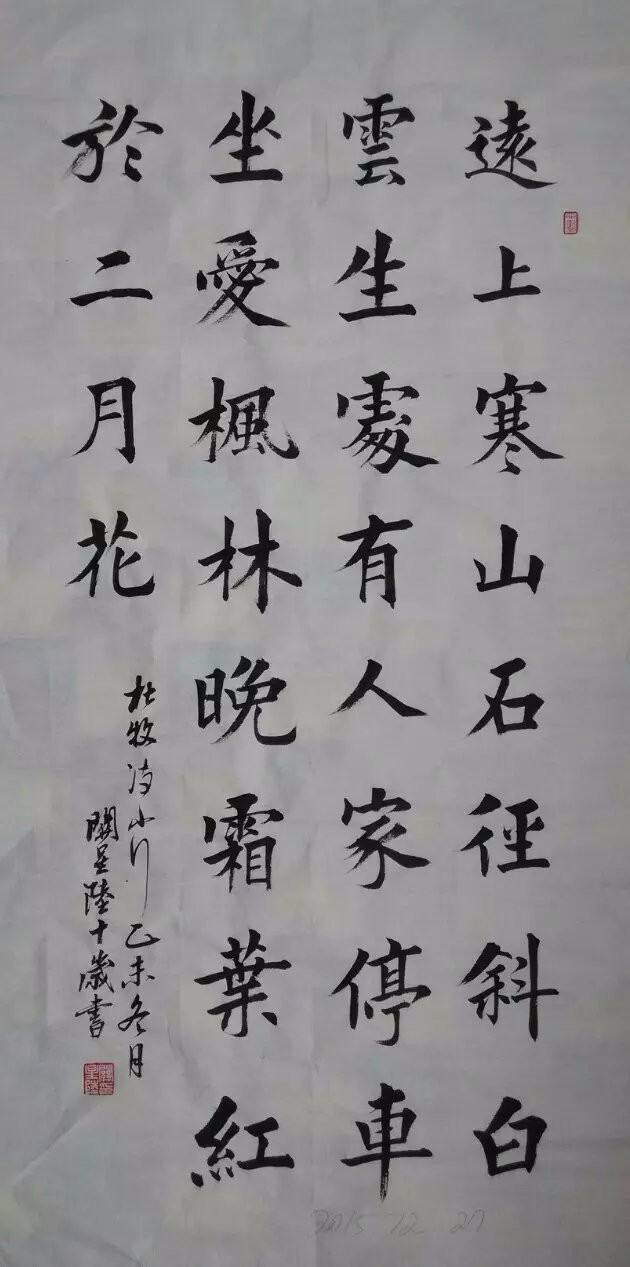 遠上寒山石徑斜白
雲生處有人家停車
坐愛楓林晚霜葉紅
於二月花
杜牧诗山行乙未冬月
陸十歲書
2015 12 27